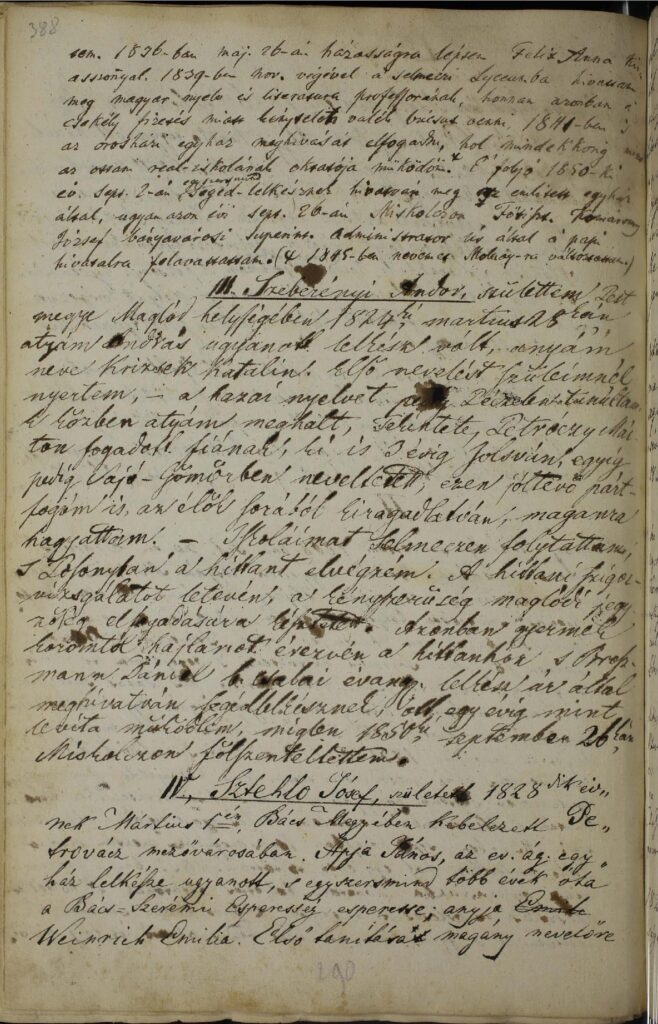 388
sem. 1836-ban maj. 26-án házasságra lépsem Felix Anna kis
asszonyal. 1839-ben nov. végével a selmeczi Lyceumba hivassam
meg magyar nyelv és literatura professorának, honnan azonban a
csekély fizesés miass kénytelen valék búcsus venni, 1841-ben
az orosházi egyház meghivásás elfogadni, hol mindekkorig
az ossani real-iskolának oksasója működöm. E folyó 1850-ki
év. seps. 2-án Segéd-lelkésznek hivassam meg az emlisess egyház
álsal, ugyan azon évi seps. 26-án Miskolczon Fősiss.
József bányavárosi superins. adminissrasor úr álsal a papi
hivasalra felavassassam. (4 1845-ben nevemes Molnár-ra válsozsassam.)
III. Szeberényi Andor, születtem Pest
megye Maglód helységében 1824ki martius 28kán
atyám András ugyanott lelkész volt, anyám
neve Krizsek Katalin. Első nevelést szüleimnél
nyertem, – a hazai nyelvet pedig
közben atyám meghalt, tekintetes Petróczy Már
ton fogadott fiának, ki is 3 évig Zolsván, egyig
pedig Sajó-Gömörben neveltetett, ezen jóltevő párt
fogóm is, az élők sorából kiragadtatván, maganra
hagyattam. – Iskoláimat Selmeczen folytattam,
s Losonyban a hittant elvégzém. A hittani szigor-
vizsgálatot letevén, a kényszerűség maglódi jegy
zőség elfogadására késztetett. Azonban gyermek
koromtól hajlamot érezvén a hittanhoz s Bross
mann Dániel b. csalai évang. lelkész úr által
meghivatván segédlelkésznek, ott egy évig mint
levita működtem, miglen 1850ki September 26kán
Miskolczon fölszenteltettem.
IV, Sztehlo Jósef, született 1828dik év„
nek Martius 1én, Bács Megyében kebelezett Pe„
trovácz mezővárosában. Apja János, az ev. ág. egy„
ház lelkésze ugyanott, s egyszersmind több évek óta
a Bács-Szerémi Esperesség esperesse; anyja
Weinrich Emilia. Első tanítását magány nevelőre
290